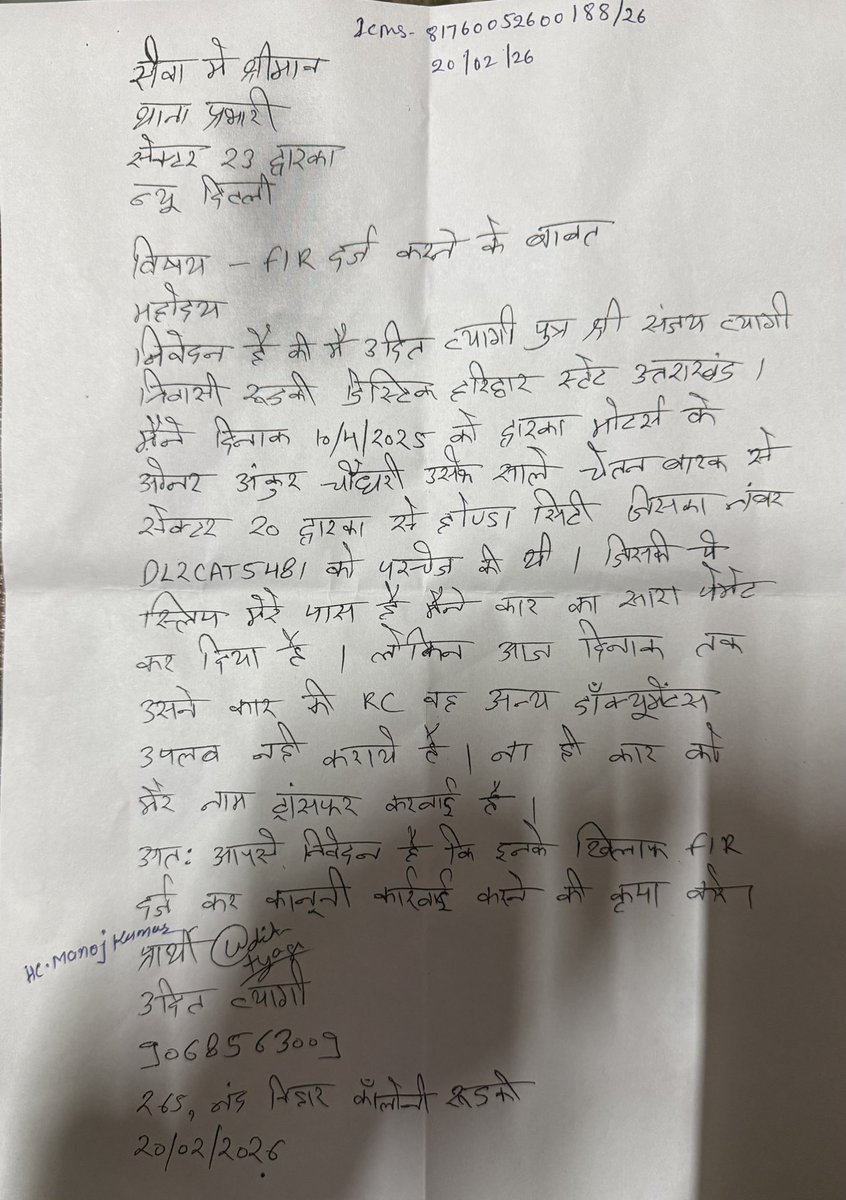 Icms- 81760052600188/26
20/02/26
सेवा मे श्रीमान
थाना प्रभारी
सेक्टर 23 द्वारका
न्यू दिल्ली
विषय - FIR दर्ज करने के बाबत
महोदय
निवेदन है की मै उदित त्यागी पुत्र श्री संजय त्यागी
निवासी रूडकी डिस्टिक हरिद्वार स्टेट उत्तराखंड ।
मैने दिनाक 10/4/2025 को द्वारका मोटर्स के
ओनर अंकुर चौधरी उसके साले चेतन बारक से
सेक्टर 20 द्वारका से होण्डा सिटी जिसका नंबर
DL2CAT5481 को परचेज की थी । जिसकी पे
स्लिप मेरे पास है मैने कार का सारा पेमेंट
कर दिया है । लेकिन आज दिनाक तक
उसने कार की RC वह अन्य डॉक्यूमेंटस
उपलब नही कराये है । ना ही कार को
मेरे नाम ट्रांसफर करवाई है ।
अत: आपसे निवेदन है कि इनके खिलाफ FIR
दर्ज कर कानूनी कार्रवाई करने की कृपा करे ।
HC. Manoj Kumar
प्रार्थी Udit Tyagi
उदित त्यागी
9068563009
265, नंद विहार कॉलोनी रूडकी
20/02/2026